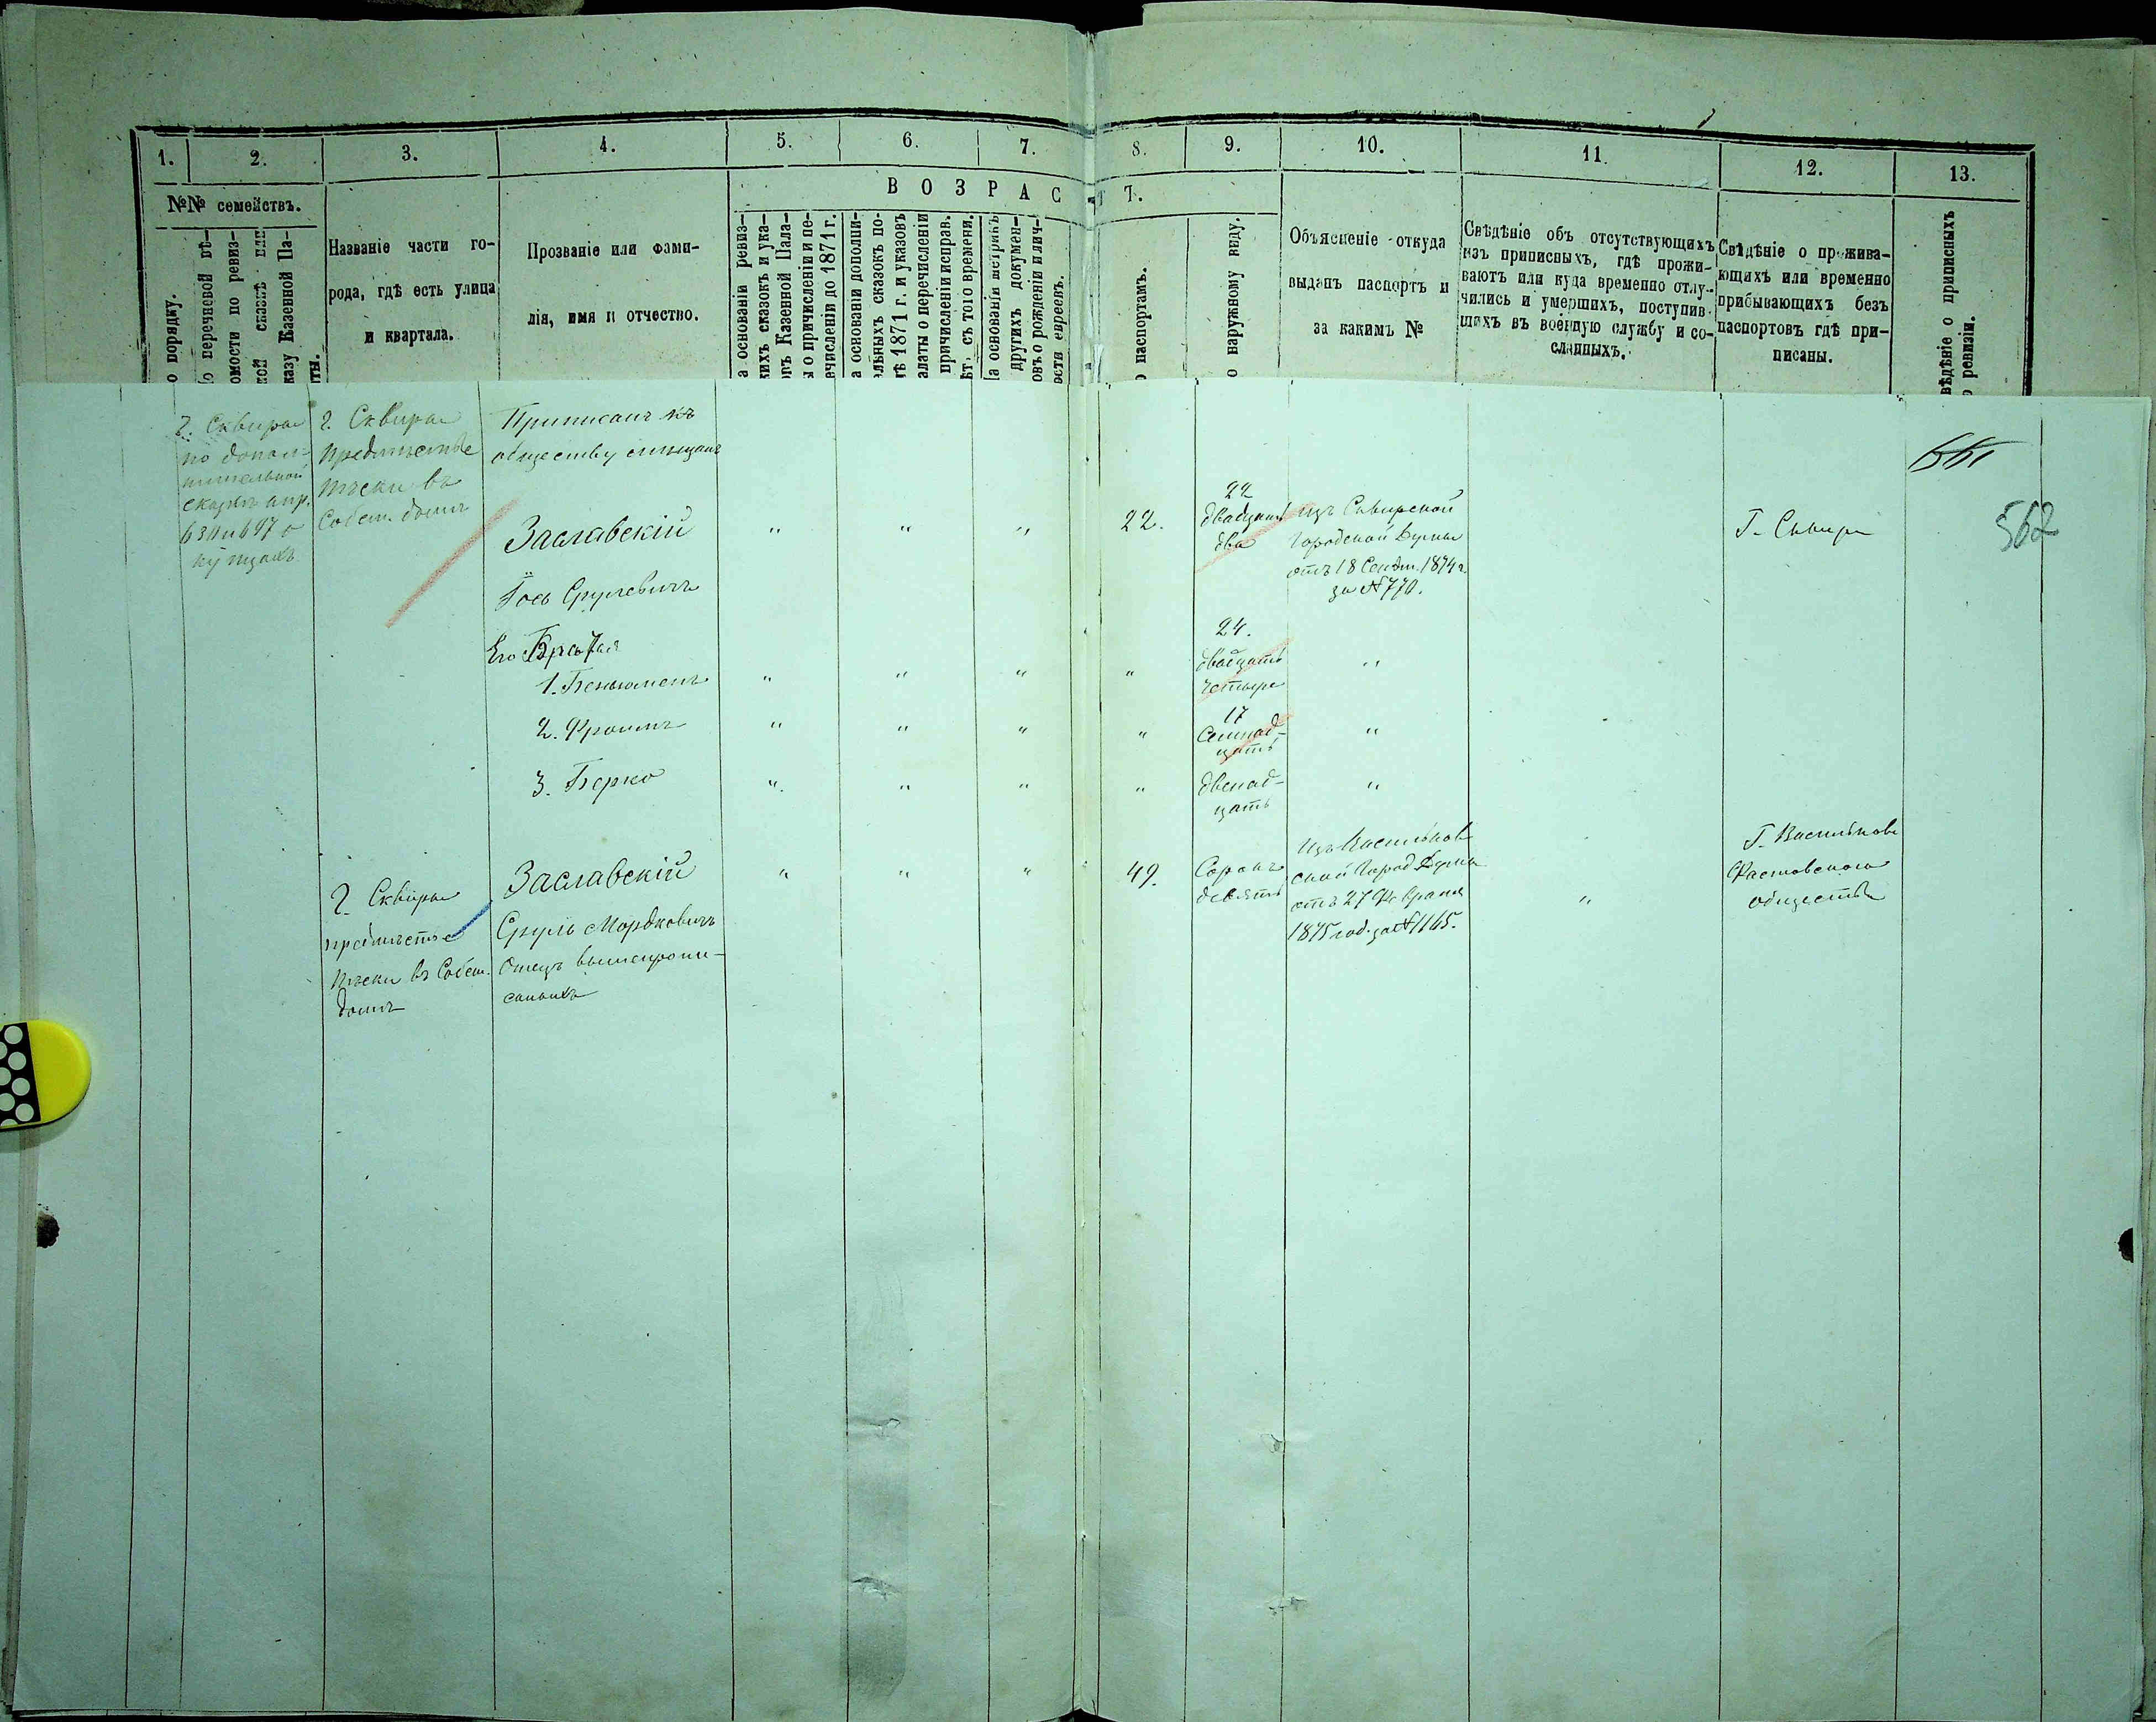 1. 2. 3. 4. 5. 6. 7. 8. 9. 10. 11. 12. 13.
В О З Р А С Т Ъ.
№№ семействъ.
о порядку.
о перечневой вѣ-
омости по ревиз-
ной сказкѣ или
казу Казенной Па-
ты.
Названіе части го-
рода, гдѣ есть улица
и квартала.
Прозваніе или фами-
лія, имя и отчество.
а основаніи ревиз-
кихъ сказокъ и ука-
овъ Казенной Пала-
ы о причисленіи и пе-
ечисленіи до 1871 г.
а основаніи дополни-
ельныхъ сказокъ по-
лѣ 1871 г. и указовъ
алаты о перечисленіи
причисленіи исправ.
ѣт. съ того времени.
а основаніи метрикъ
другихъ докумен-
овъ о рожденіи и лич-
ости евреевъ.
о паспортамъ.
о наружному виду.
Объясненіе откуда
выданъ паспортъ и
за какимъ №
Свѣдѣніе объ отсутствующихъ
изъ приписныхъ, гдѣ прожи-
ваютъ или куда временно отлу-
чились и умершихъ, поступив-
шихъ въ военную службу и со-
сланныхъ.
Свѣдѣніе о прожива-
ющихъ или временно
прибывающихъ безъ
паспортовъ гдѣ при-
писаны.
вѣдѣніе о приписныхъ
о ревизіи.
г. Сквира
по допол-
нительной
сказкѣ
630 и 697 о
купцахъ
г. Сквира
предмѣстье
Пѣски въ
Собст. домѣ
Приписанъ къ
обществу мѣщанъ
Заславскій
Іось Срулевичъ
" " "
22.
22
двадцать
два
изъ Сквирской
Городской Думы
отъ 18 Сент. 1874 г.
за № 770.
Г. Сквира
562
Его Братья
1. Беньюменъ
" " " "
24.
двадцать
четыре
"
2. Фроимъ
" " " "
17
Семнад-
цать
"
3. Берко
" " " "
двенад-
цать
"
г. Сквира
предмѣстье
Пѣски въ Собст.
домѣ
Заславскій
Сруль Мордковичъ
Отецъ вышепропи-
санныхъ
" " "
49.
Сорокъ
девять
Изъ Васильков
ской Город. Думы
отъ 27 Февраля
1875 год. за № 1165.
"
Г. Васильковъ
Фастовского
общества